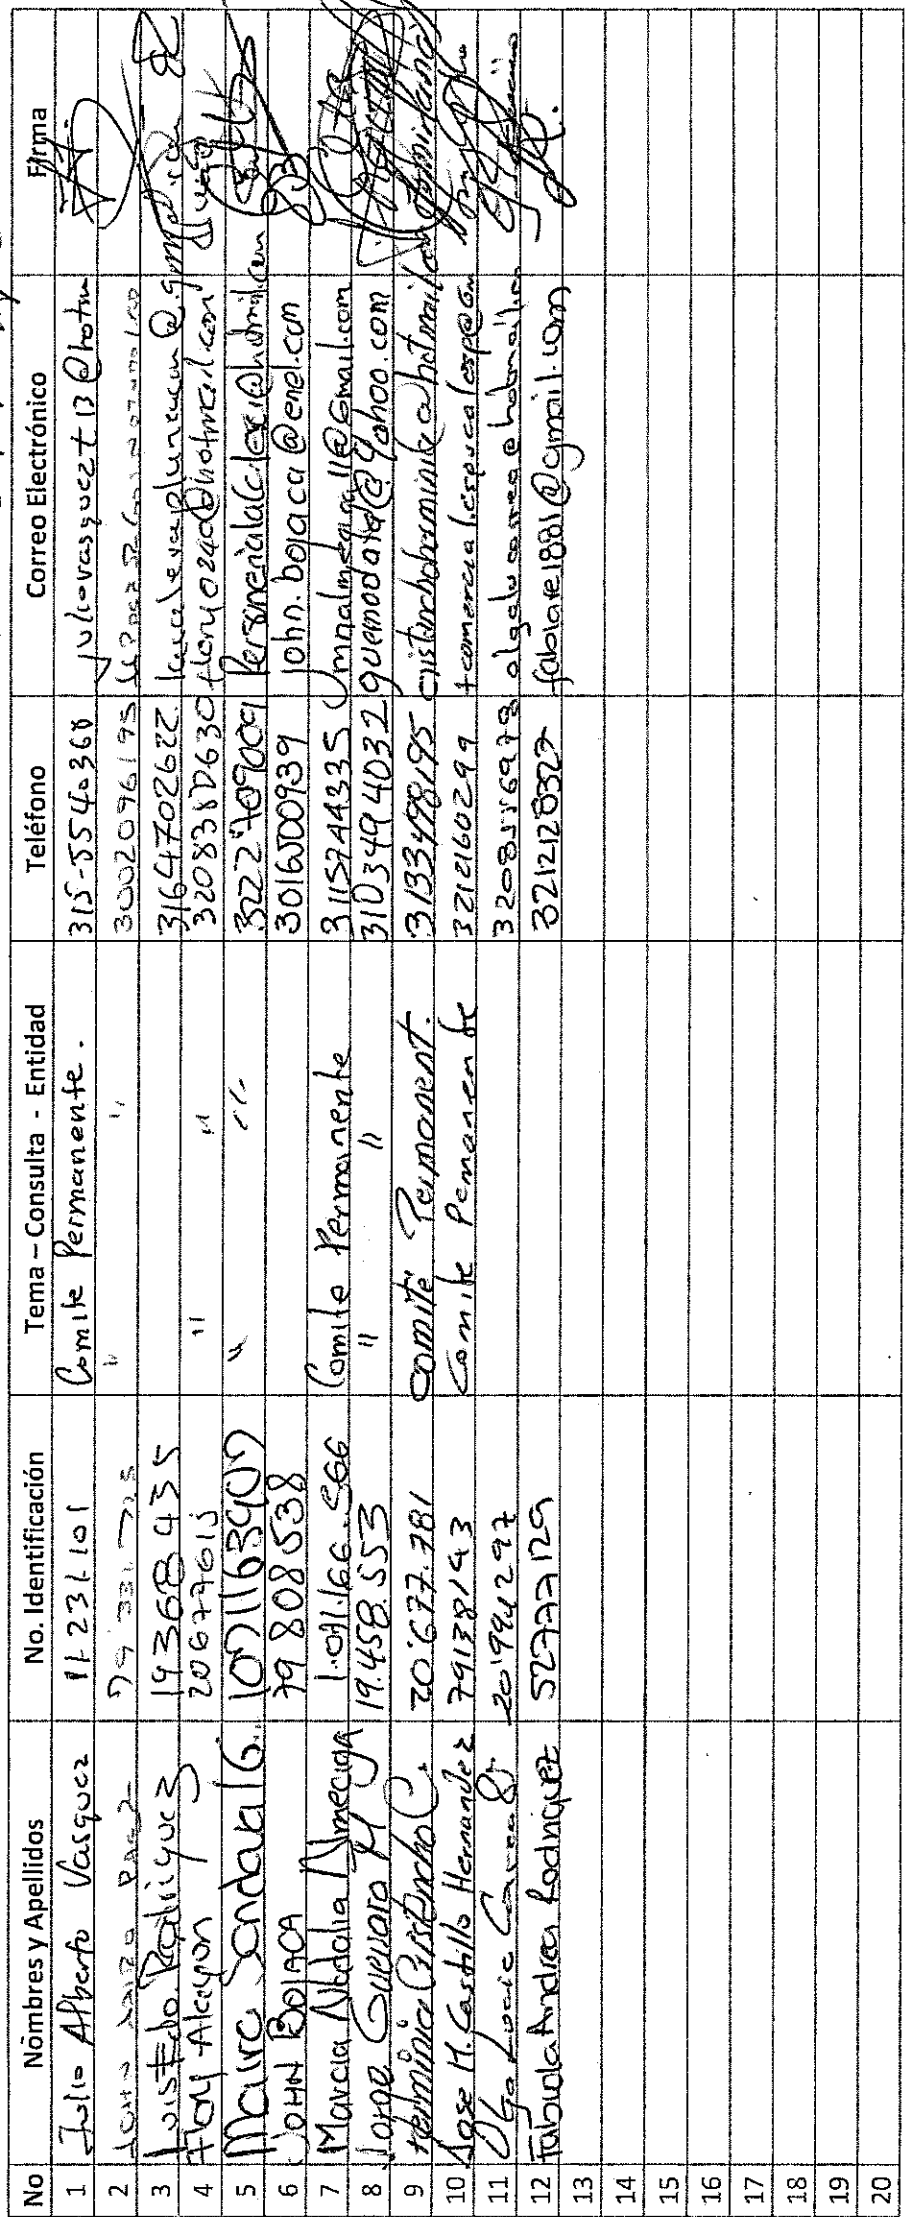 No Nombres y Apellidos No. Identificación Tema – Consulta - Entidad Teléfono Correo Electrónico Firma
1 Julio Alberto Vasquez 11.231.101 Comite Permanente. 315-5540368 juliovasquezt13@hotm
2 John Jairo Paez 79 331 715 " " 3002096195
3 Luis Edo. Rodriguez 19368435 3164702622
4 Flory Alarcon 20677615 " " 3208380630 flory0240@hotmail.com
5 Maira Sandoval G. 1071163909 " " 3222709009 Personerialacalera@hotmail.com
6 JOHN BOJACA 79808538 3016500939 john.bojaca@enel.com
7 Marcia Natalia Almeciga 1.071.166.566 Comite Permanente 3115744335 mnalmeciga11@gmail.com
8 Jorge Guevara M 19.458.553 " " 3103494032 guemodata@yahoo.com
9 Herminia Cristancho C. 20.677.781 Comité Permanent. 3133498195 cristanchoherminia@hotmail.com
10 Jose M. Castillo Hernandez 79138143 Comite Pemanente 3212160299
11 Olga Lucia Correa 20994297 3208556973 olgalucorrea@hotmail
12 Fabiola Andrea Rodriguez 52777129 3212128327 fabiolare1881@gmail.com
13
14
15
16
17
18
19
20